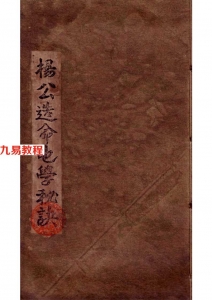 楊公造命地學秘訣
九易教程